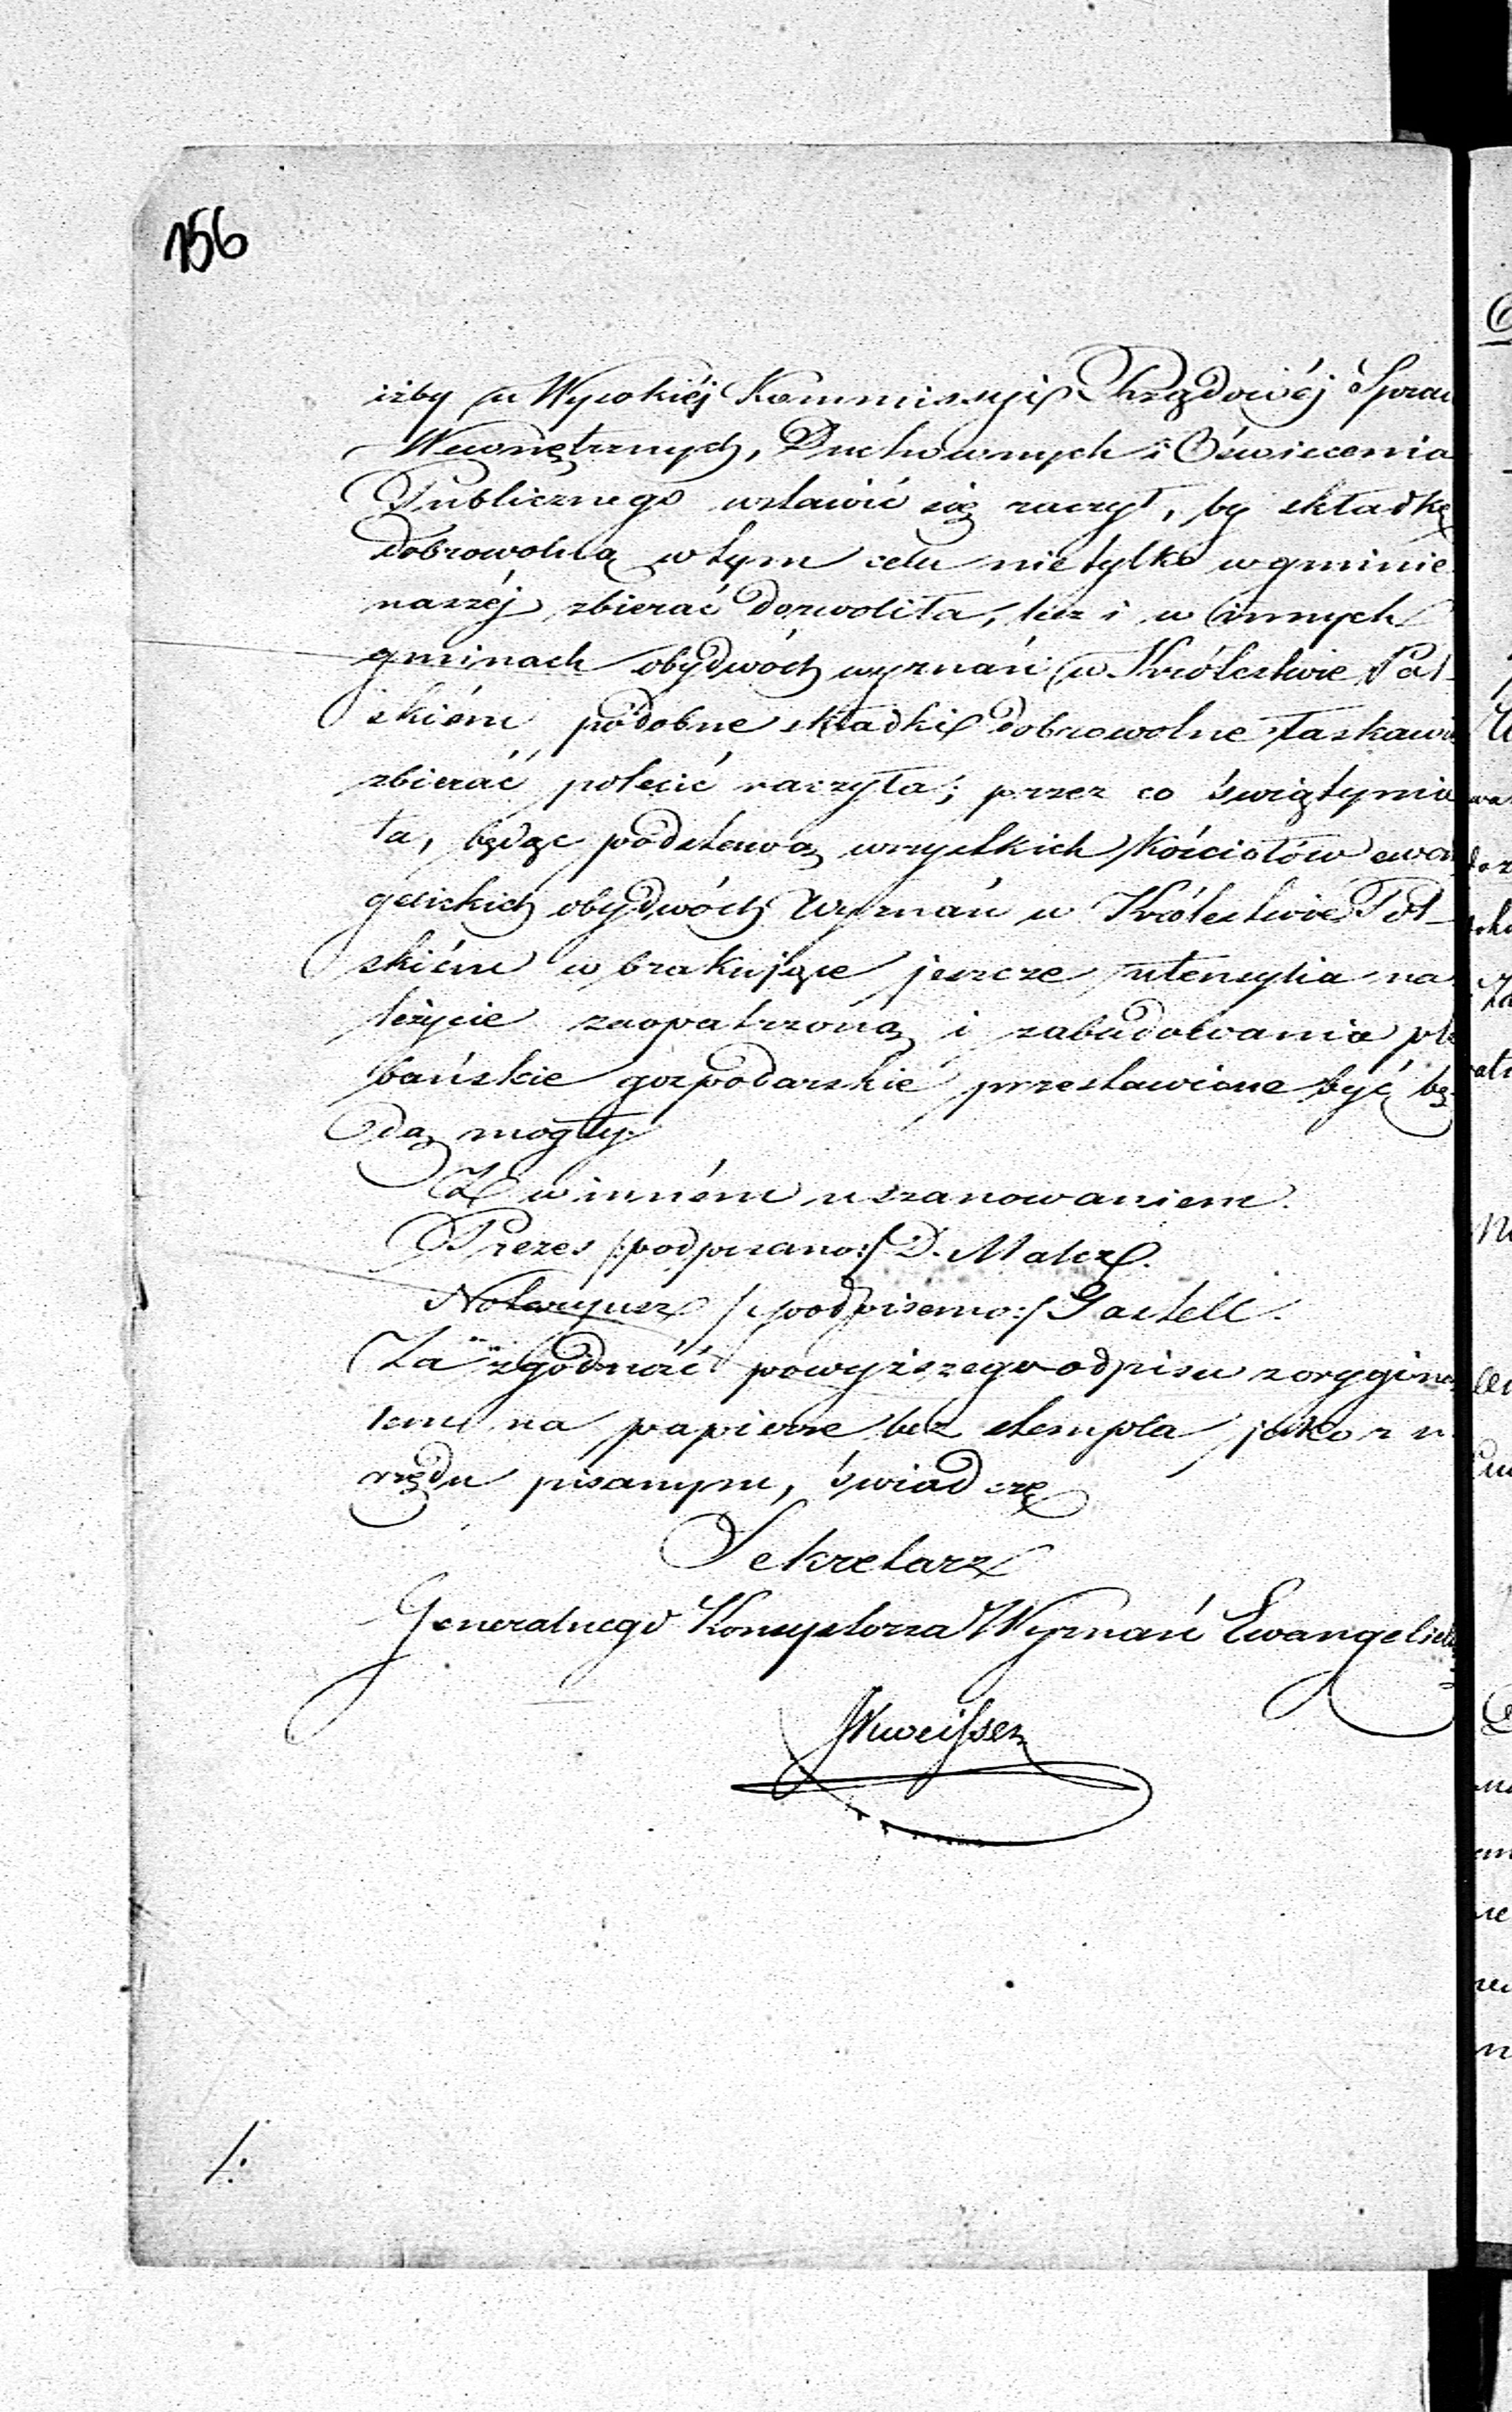 156
iżby u Wysokiéj Kommissyi Rządowéj Spraw
Wewnętrznych, Duchownych i Oświecenia
Publicznego wstawić się raczył, by składkę
dobrowolną w tym celu nietylko w gminie
naszéj zbierać dozwoliła, lecz i w innych
gminach obydwóch wyznań w Królestwie Pol-
skiém podobne składki dobrowolne łaskawie
zbierać polecić raczyła; przez co świątynia
ta, będąc podstawą wszystkich kościołów ewan
gelickich obydwóch Wyznań w Królestwie Pol-
skiém w brakujące jeszcze utensylia na
leżycie zaopatrzoną i zabudowania ple
bańskie gospodarskie przestawione być bę-
dą mogły.
Z winném uszanowaniem.
Prezes /:podpisano:/ D. Malcz.
Notaryusz /:podpisano:/ Gastell.
Za zgodność powyższego odpisu z orygina
łem na papierze bez stempla jako z u
rzędu pisanym, świadczę
Sekretarz
Generalnego Konsystorza Wyznań Ewangelick
/: